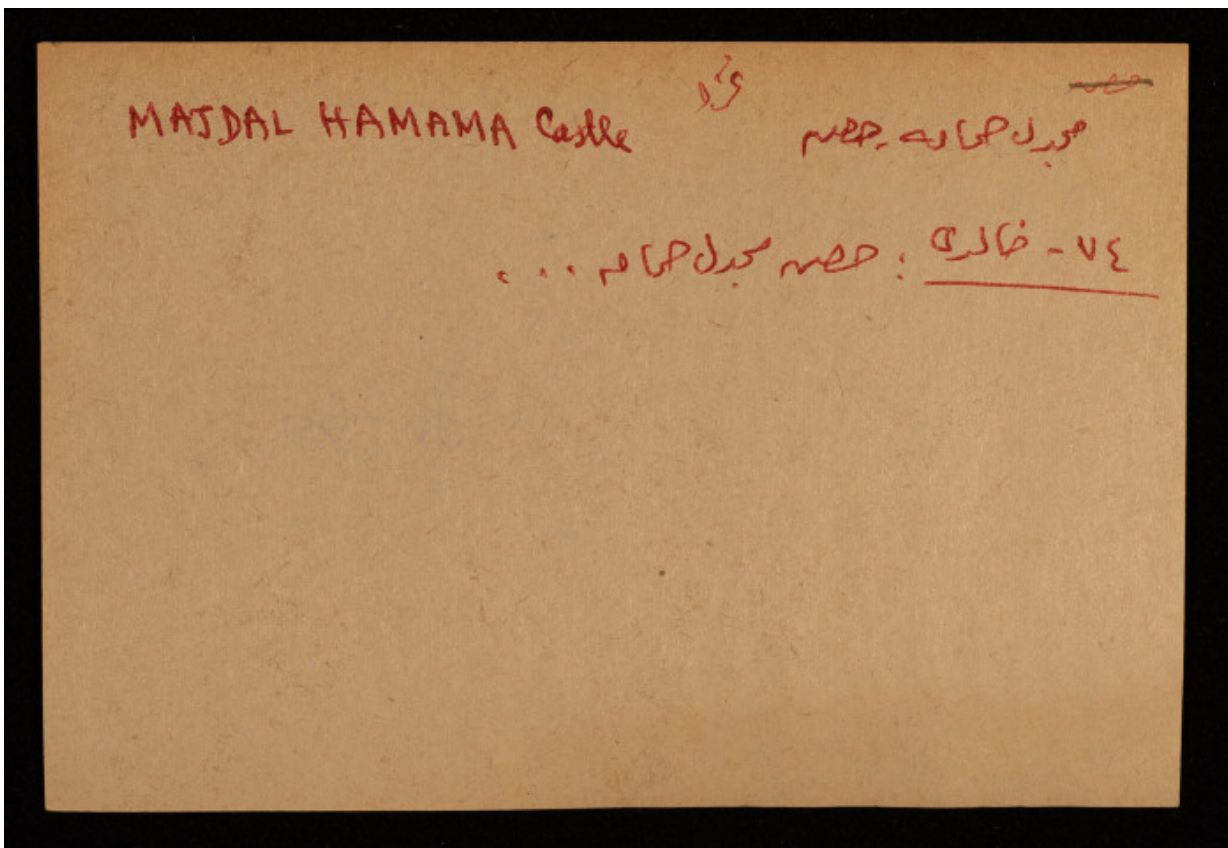 MAJDAL HAMAMA Castle
مجدل حمامه، حصن
٧٤ - خالدي : حصن مجدل حمامه ...